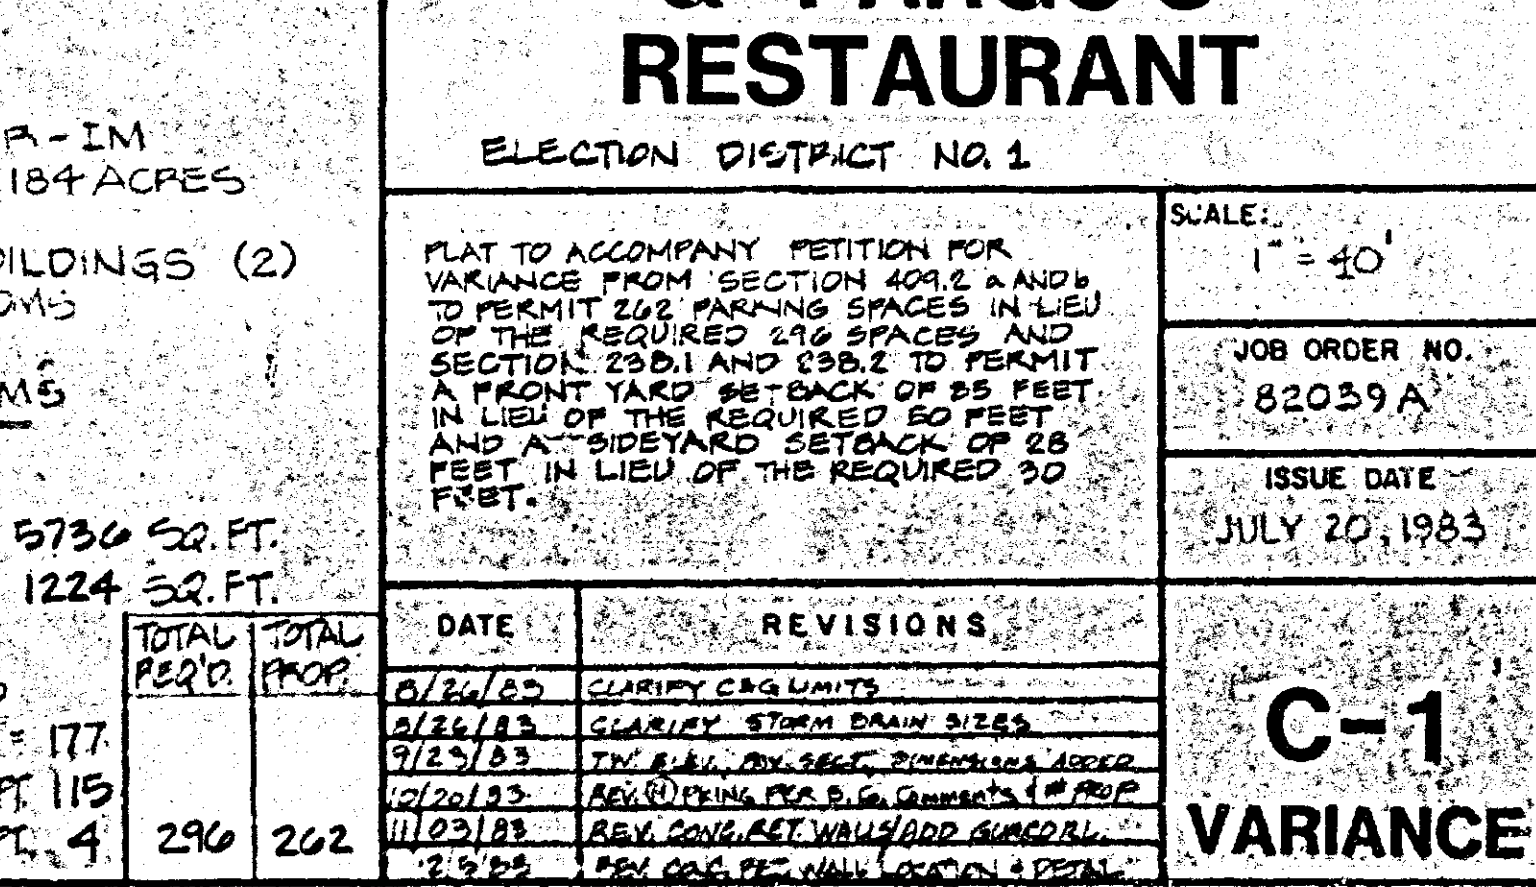 RESTAURANT
ELECTION DISTRICT NO. 1
R-IM
184 ACRES
(2)
5736 SQ. FT.
1224 SQ. FT.
TOTAL REQ'D. TOTAL PROP.
= 177
115
4 296 262
PLAT TO ACCOMPANY PETITION FOR
VARIANCE FROM SECTION 409.2 a AND b
TO PERMIT 262 PARKING SPACES IN LIEU
OF THE REQUIRED 296 SPACES AND
SECTION 238.1 AND 238.2 TO PERMIT
A FRONT YARD SETBACK OF 35 FEET
IN LIEU OF THE REQUIRED 50 FEET
AND A SIDEYARD SETBACK OF 28
FEET IN LIEU OF THE REQUIRED 30
FEET.
SCALE:
1" = 40'
JOB ORDER NO.
82039 A
ISSUE DATE
JULY 20, 1983
DATE REVISIONS
8/26/83 CLARIFY C&G LIMITS
8/26/83 CLARIFY STORM DRAIN SIZES
9/23/83 DIMENSIONS ADDED
10/20/83 REV. (H) PKING PER B. Co. Comments & # PROP
11/03/83 REV. CONC. RET. WALLS/ADD
REV. CONC. RET. WALL LOCATION & DETAIL
C-1
VARIANCE